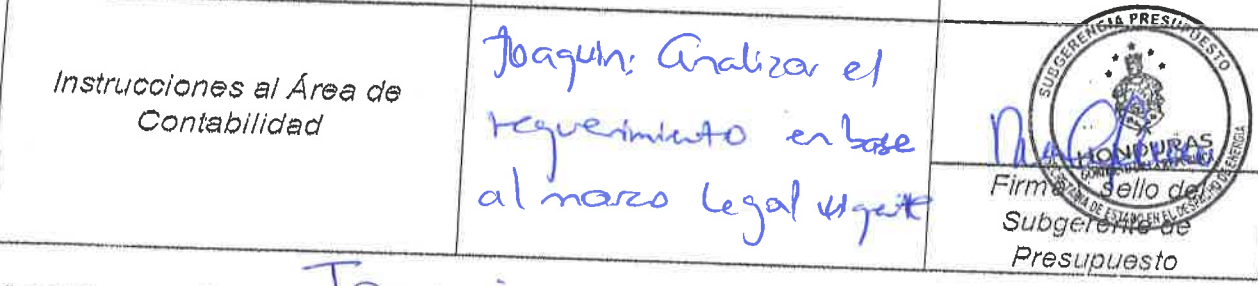 Instrucciones al Área de
Contabilidad
Joaquín: Analizar el
requerimiento en base
al marco Legal vigente
SUBGERENCIA PRESUPUESTO
HONDURAS
GOBIERNO DE LA REPÚBLICA
SECRETARÍA DE ESTADO EN EL DESPACHO DE ENERGÍA
Firma y sello del
Subgerente de
Presupuesto